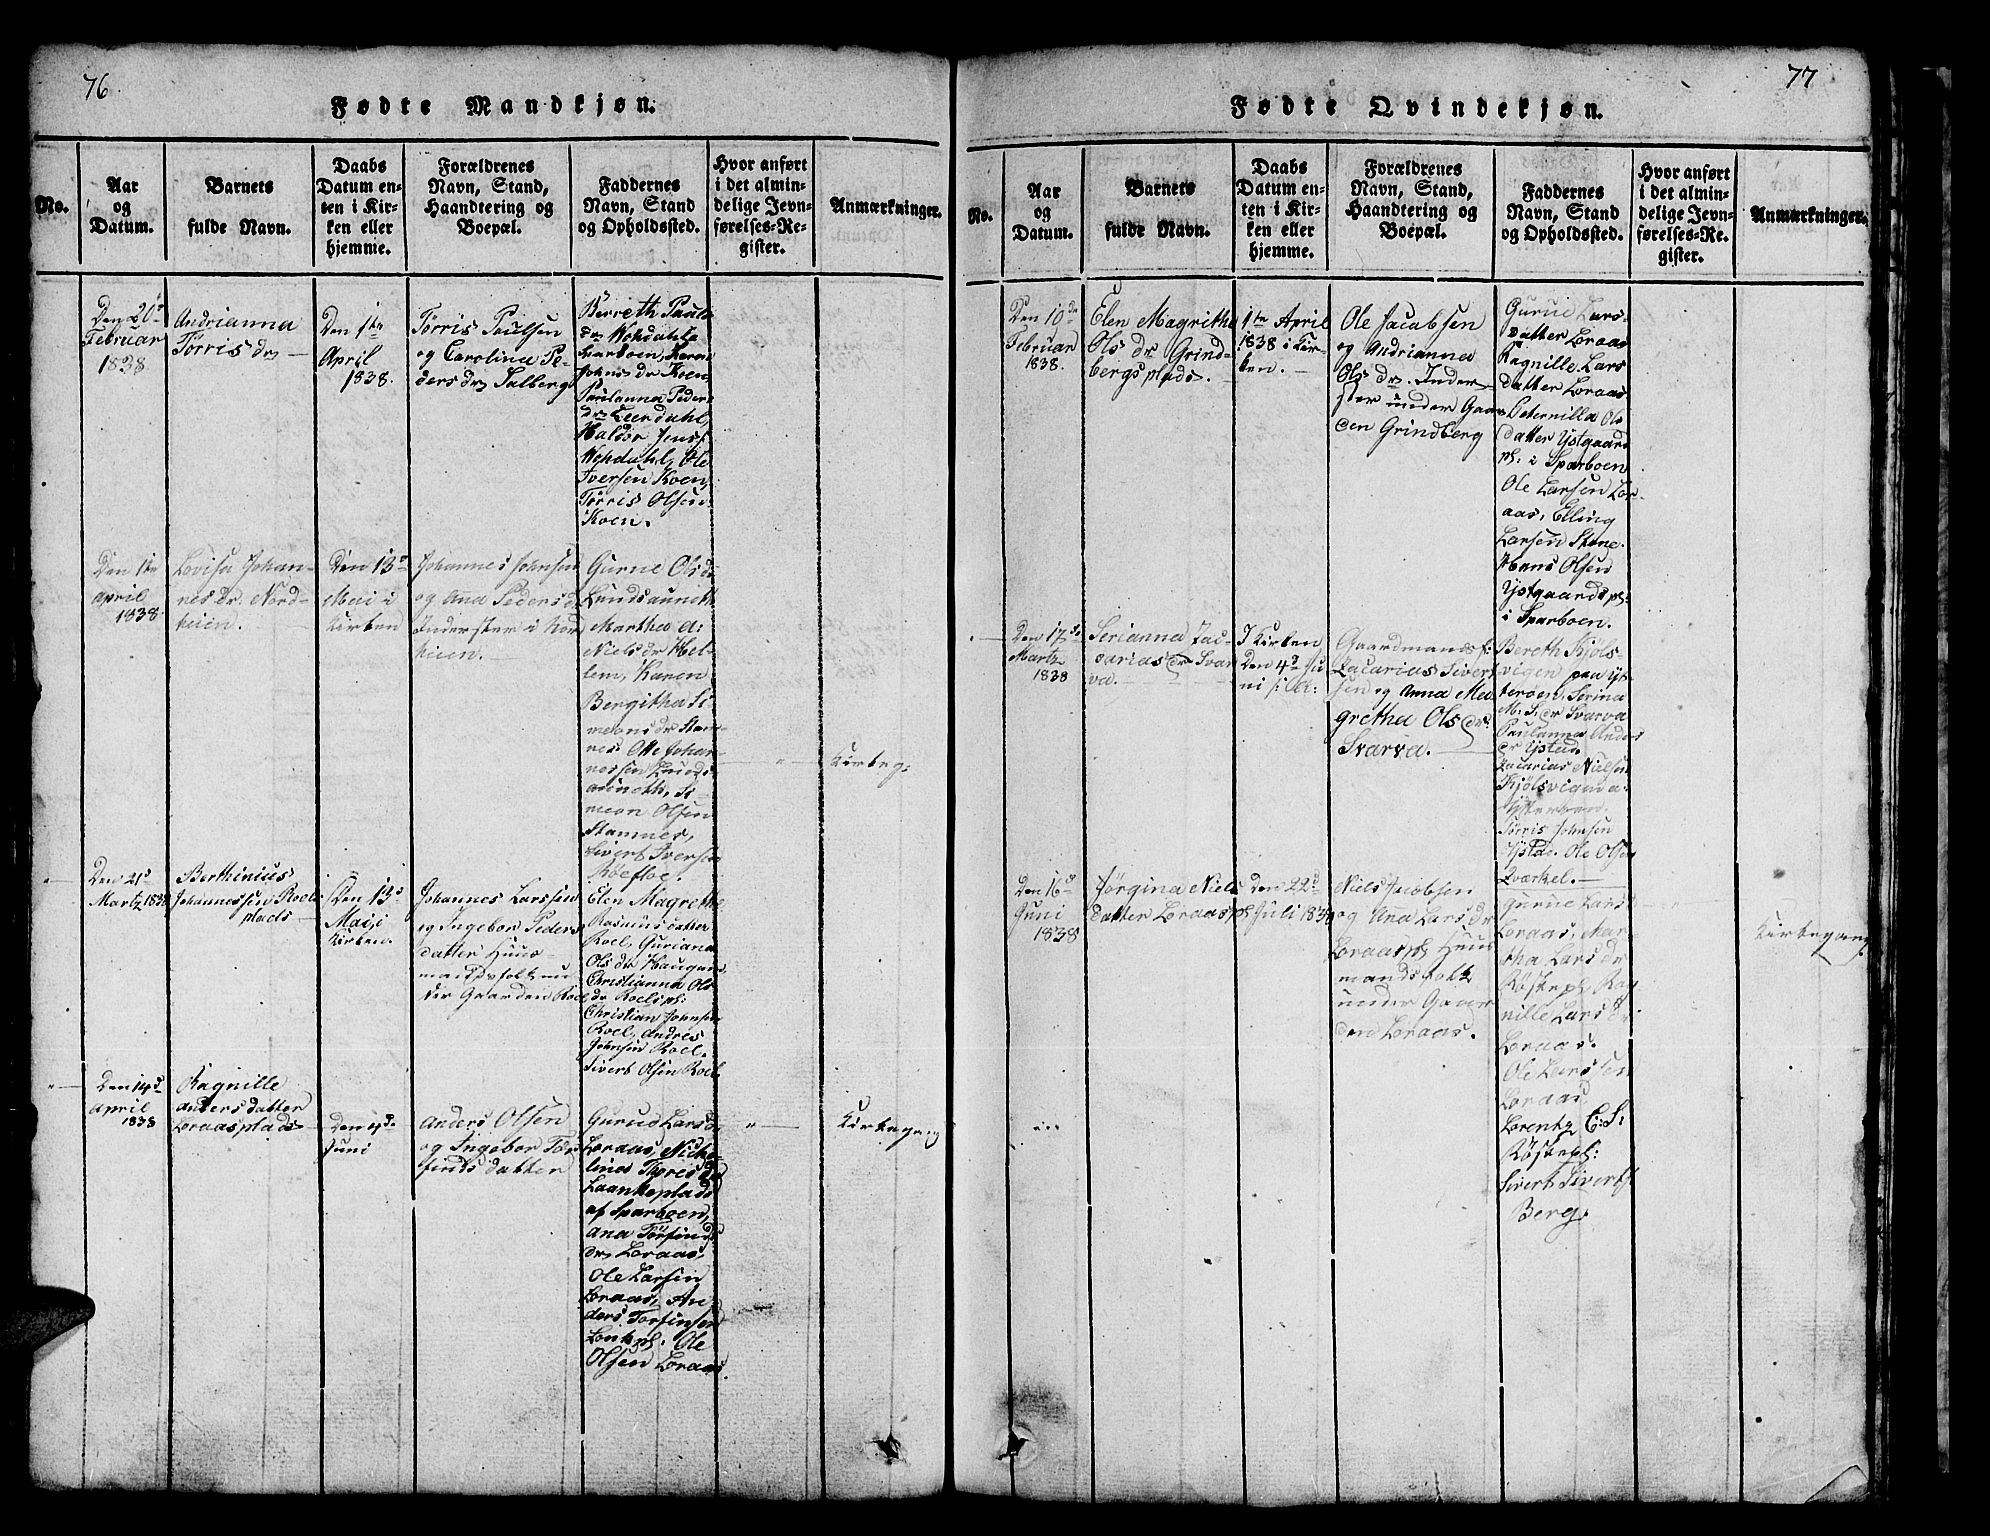 76
Fødte Mandkjøn.
No.
Aar
og
Datum.
Barnets
fulde Navn.
Daabs
Datum en-
ten i Kir-
ken eller
hjemme.
Forældrenes
Navn, Stand,
Haandtering og
Boepæl.
Faddernes
Navn, Stand
og Opholdssted.
Hvor anført
i det almin-
delige Jevn-
førelses-Re-
gister.
Anmærkninger.
Den 20de
Februar
1838
Andrianna
Tørris dr
Den 1te
April
1838.
Tørris Paulsen
og Carolina Pe-
ders dr Salberg
Berreth Pauls
dr Wohdahls
Sparboen, Karen
Johns dr Koen,
Paulanna Peders
dr Leerdahl,
Haldor Jens.
Wohdahl, Ole
Iversen Koen,
Tørris Olsen
Koen.
Den 1te
April
1838
Lovisa Johan-
nes dr. Nord-
heien.
Den 13de
Mai i
Kirken
Johannes Johnsen
og Ana Peders dr
Inderster i Nor
heien.
Gurue Ols dr
Lundsauneth
Martha A:
Niels dr Hel-
lem, Karen
Bergitha Si-
meons dr Stam-
nes. Otte Johan-
nessen Lunds-
auneth, Si-
meon Olsen
Stamnes,
Sivert Iversen
Røeskoe.
Kirkeg:
Den 21de
Martz 1838
Berthinius
Johannessen Roels
plads
Den 13de
Mai i
Kirken.
Johannes Larssen
og Ingebor Peders
datter Huus-
mandsfolk un-
der Gaarden Roel
Elen Magrethe
Rasmus datter
Roel, Guriana
Ols dr Haugan
Christianna Ols
dr Roelspl:
Christian Johnsen
Roel, Andres
Johnsen Roel.
Sivert Olsen Roel.
Den 14de
April
1838
Ragnille
Anders datter
Loraasplads
Den 4de
Juni
Anders Olsen
og Ingebor Tor-
finds datter
Gurue Lars dr
Loraas, Niche-
lina Thores dr
Laankeplads
af Sparboen,
Ana Torfinds
dr Loraas,
Ole Larsen
Loraas, An-
ders Torfinsen
Lonkpl: Ole
Olsen Loraas.
Kirkegang
77
Fødte Qvindekjøn.
No.
Aar
og
Datum.
Barnets
fulde Navn.
Daabs
Datum en-
ten i Kir-
ken eller
hjemme.
Forældrenes
Navn, Stand,
Haandtering og
Boepæl.
Faddernes
Navn, Stand
og Opholdssted.
Hvor anført
i det almin-
delige Jevn-
førelses-Re-
gister.
Anmærkninger.
Den 10de
Februar
1838.
Elen Magritha
Ols dr Grind-
bergsplads.
1te April
1838 i Kir-
ken.
Ole Jacobsen
og Andrianna
Ols dr. Inder-
ster under Gaar-
den Grindberg
Gurue Lars-
datter Loraas
Ragnille Lars
datter Loraas
Peternilla Ols
datter Ystgaards
pl: i Sparboen
Ole Larsen Lor-
aas, Elling
Larsen Stene.
Hans Olsen
Ystgaardspl:
i Sparboen.
Den 17de
Martz
1838
Serianna Zac-
carias dr Svar
va.
I Kirken
Den 4de Ju-
ni
Gaardmandsf:
Zacarias Sivert-
sen og Anna Ma-
gretha Ols dr.
Svarva.
Bereth Kjøls-
vigen paa Yt-
terøen, Serina
M: S: dr Svarva
Paulanna Anders
dr Ystad.
Zacarias Nielsen
Kjølsvigen
Ytterøen.
Tørris Johnsen
Ystad. Ole Olsen
Qværkel.
Den 16de
Juni
1838
Jørgina Niels
datter Loraaspl
Den 22de
Juli 1838
Niels Jacobsen
og Ana Lars dr
Loraaspl Huus
mandsfolk
under Gaar
den Loraas.
Gurue Lars
Loraas, Mar-
tha Lars dr
Røstepl Rag
nille Lars dr
Loraas.
Ole Larssen
Loraas
Lorentz C: S:
Røstepl:
Sivert Siverts
Berg.
Kirkegang